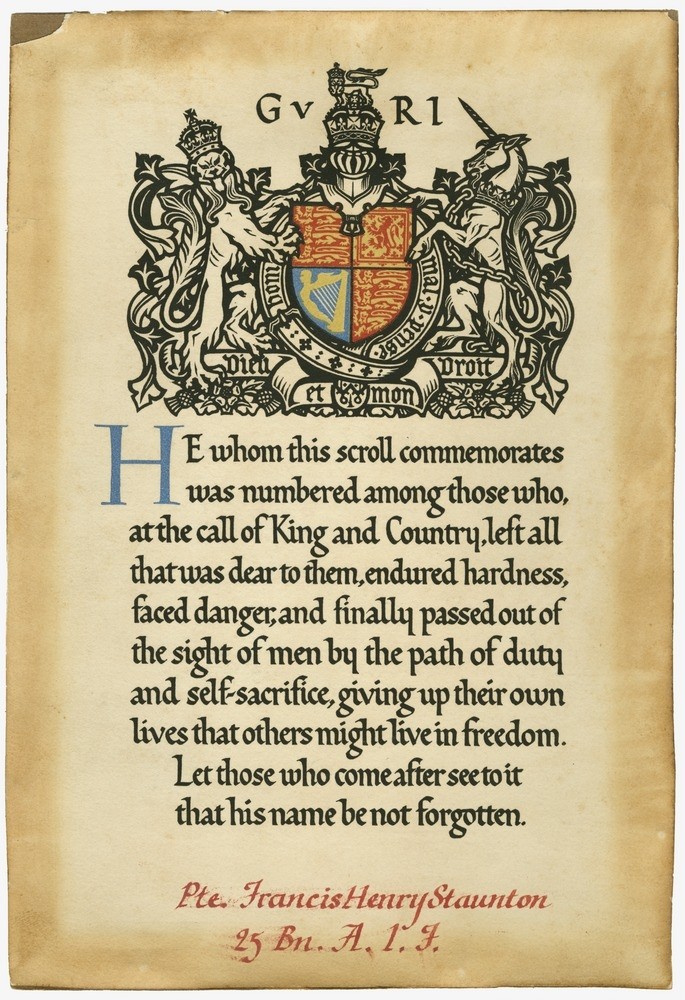 G V R I
Honi soit qui mal y pense
Dieu et mon Droit
HE whom this scroll commemorates
was numbered among those who,
at the call of King and Country, left all
that was dear to them, endured hardness,
faced danger, and finally passed out of
the sight of men by the path of duty
and self-sacrifice, giving up their own
lives that others might live in freedom.
Let those who come after see to it
that his name be not forgotten.
Pte. Francis Henry Staunton
25 Bn. A. I. F.